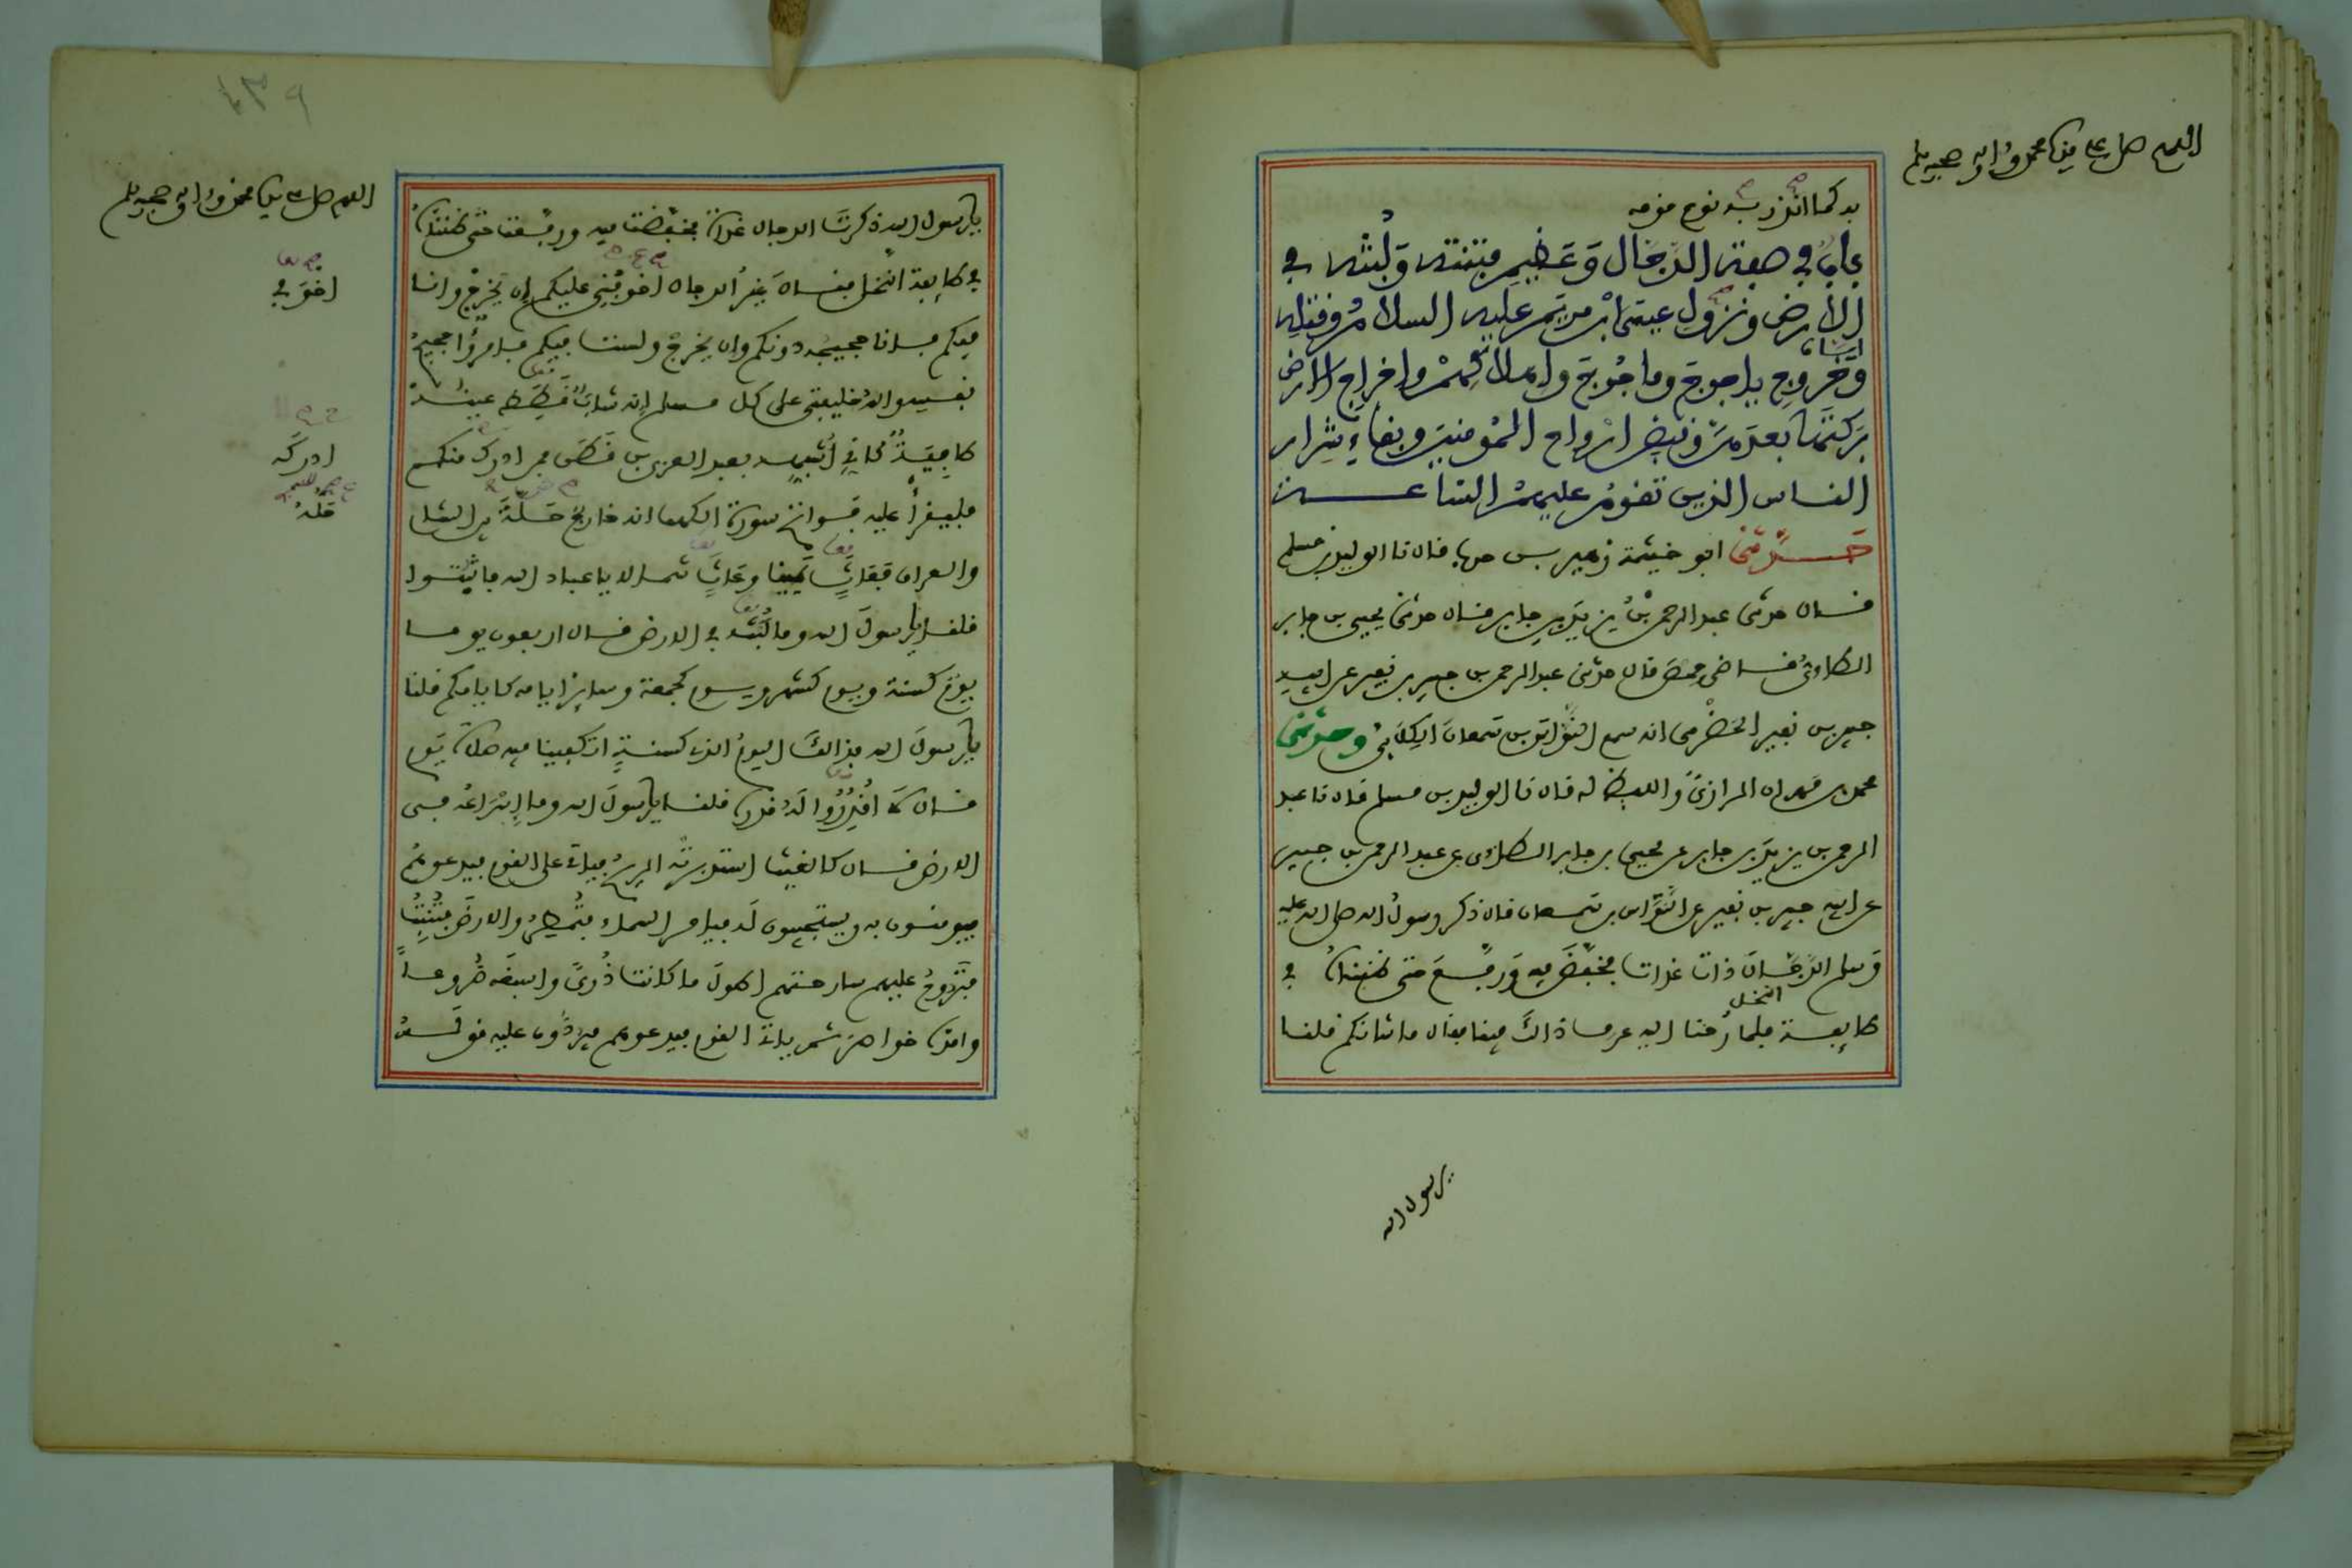 اللهم صل على سيدنا محمد واله وصحبه وسلم
به كما انذر به نوح قومه
باب في صفة الدجال وعظيم فتنته ولبثه في
الارض ونزول عيسى ابن مريم عليه السلام وقتله
اياه
وخروج ياجوج وماجوج واهلاكهم واخراج الارض
بركتها بعدهم وقبض ارواح المؤمنين وبقاء شرار
الناس الذين تقوم عليهم الساعة
حدثني ابو خيثمة زهير بن حرب قال نا الوليد بن مسلم
قال حدثني عبد الرحمن بن يزيد بن جابر قال حدثني يحيى بن جابر
الطاءي قاضي حمص قال حدثني عبد الرحمن بن جبير بن نفير عن ابيه
جبير بن نفير الحضرمي انه سمع النواس بن سمعان الكلابي وحدثني
محمد بن مهران الرازي واللفظ له قال نا الوليد بن مسلم قال نا عبد
الرحمن بن يزيد بن جابر عن يحيى بن جابر الطاءي عن عبد الرحمن بن جبير
عن ابيه جبير بن نفير عن النواس بن سمعان قال ذكر رسول الله صلى الله عليه
وسلم الدجال ذات غدات فخفض فيه ورفع حتى ظنناه في
النخل
طايفة فلما رحنا اليه عرف ذالك فينا فقال ما شانكم قلنا
يرسول الله
اللهم صل على سيدنا محمد واله وصحبه وسلم
يارسول الله ذكرت الدجال غداة فخفضت فيه ورفعت حتى ظنناه
في طايفة النخل فقال غير الدجال اخوفني عليكم ان يخرج وانا
اخوفي
فيكم فانا حجيجه دونكم وان يخرج ولست فيكم فامرؤا حجيج
نفسه والله خليفتي على كل مسلم انه شاب قطط عينه
طافية كاني اشبهه بعبد العزى بن قطن فمن ادرك منكم
ادركه
فليقرأ عليه فواتح سورة الكهف انه خارج خلة بين الشام
خلة
والعراق فعاث يمينا وعاث شمالا يا عباد الله فاثبتوا
قلنا يارسول الله وما لبثه في الارض قال اربعون يوما
يوم كسنة ويوم كشهر ويوم كجمعة وساير ايامه كايامكم قلنا
يارسول الله فذالك اليوم الذي كسنة اتكفينا فيه صلاة يوم
قال لا اقدروا له قدره قلنا يارسول الله وما اسراعه في
الارض قال كالغيث استدبرته الريح فياتي على القوم فيدعوهم
فيومنون به ويستجيبون له فيامر السماء فتمطر والارض فتنبت
فتروح عليهم سارحتهم اطول ما كانت ذرى واسبغه ضروعا
وامده خواصر ثم ياتي القوم فيدعوهم فيردون عليه قوله